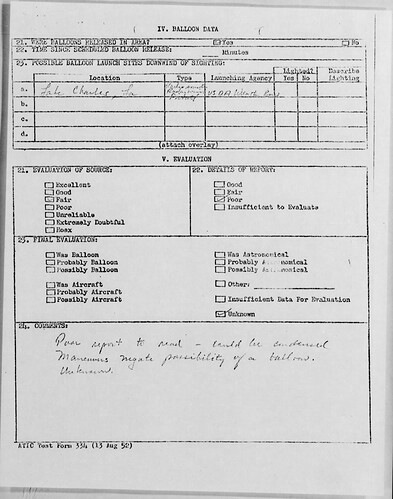 IV. BALLOON DATA
21. WERE BALLOONS RELEASED IN AREA? Yes No
22. TIME SINCE SCHEDULED BALLOON RELEASE: Minutes
23. POSSIBLE BALLOON LAUNCH SITES DOWNWIND OF SIGHTING:
Location Type Launching Agency Lighted? Yes No Describe Lighting
a. Lake Charles, La
b.
c.
d.
(attach overlay)
V. EVALUATION
21. EVALUATION OF SOURCE:
Excellent
Good
Fair
Poor
Unreliable
Extremely Doubtful
Hoax
22. DETAILS OF REPORT:
Good
Fair
Poor
Insufficient to Evaluate
23. FINAL EVALUATION:
Was Balloon
Probably Balloon
Possibly Balloon
Was Aircraft
Probably Aircraft
Possibly Aircraft
Was Astronomical
Probably
Possibly
Other:
Insufficient Data For Evaluation
Unknown
24. COMMENTS:
Poor report to read - could be condensed
Maneuvers negate possibility of a balloon.
Unknown.
ATIC Test Form 334 (13 Aug 52)